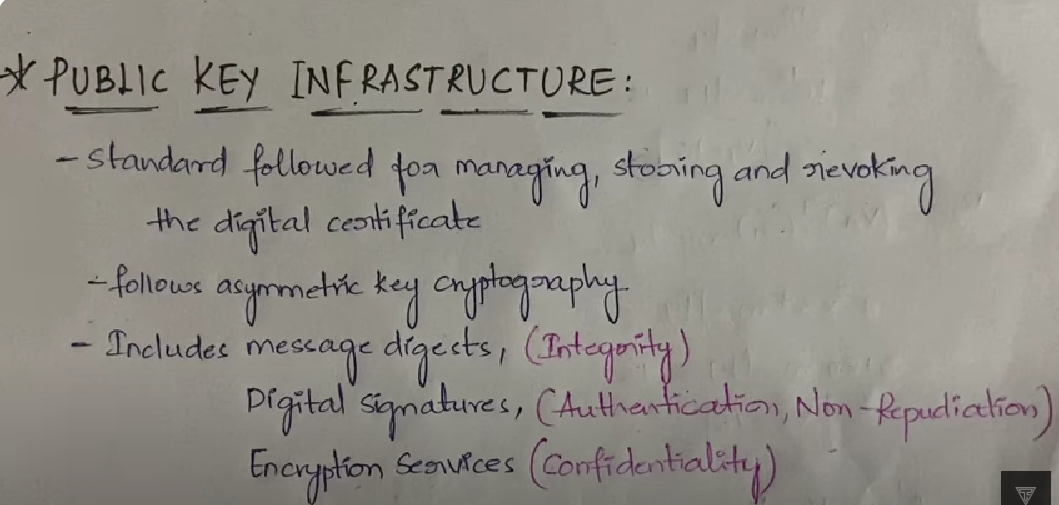 * PUBLIC KEY INFRASTRUCTURE:
- Standard followed for managing, storing and revoking
the digital certificate
- follows asymmetric key cryptography.
- Includes message digests, (Integrity)
Digital signatures, (Authentication, Non-Repudiation)
Encryption Services (Confidentiality)